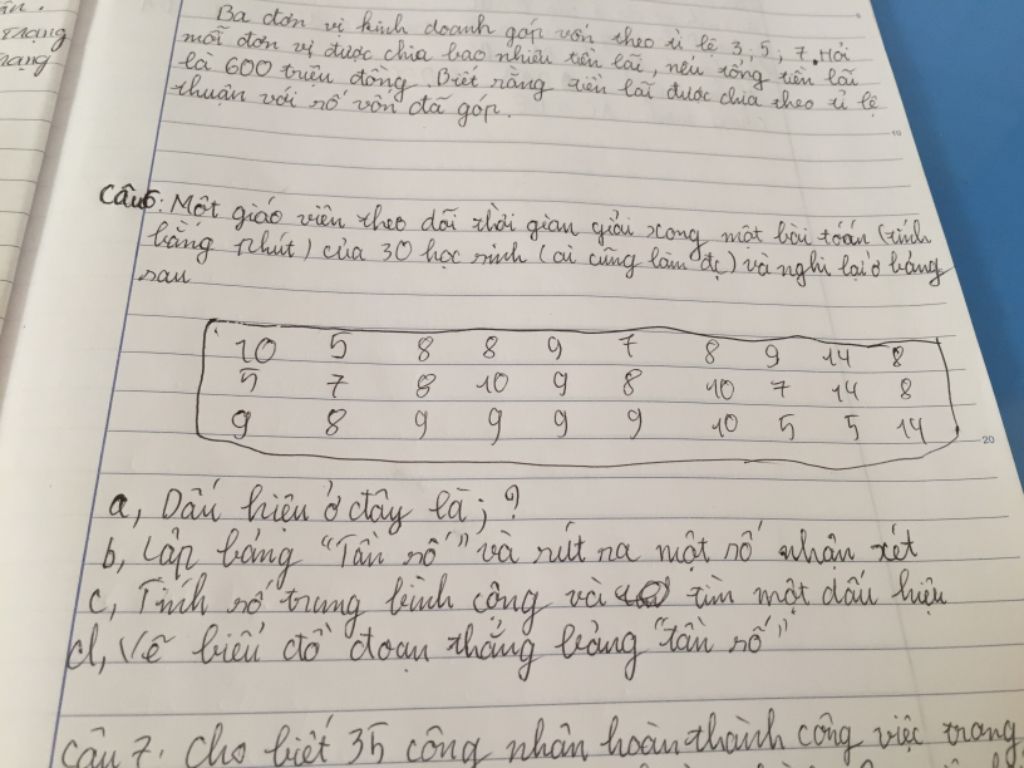 ân.
trạng
rạng
Ba đơn vị kinh doanh góp vốn theo tỉ lệ 3; 5; 7. Hỏi
mỗi đơn vị được chia bao nhiêu tiền lãi, nếu tổng tiền lãi
là 600 triệu đồng. Biết rằng tiền lãi được chia theo tỉ lệ
thuận với số vốn đã góp.
10
Câu6: Một giáo viên theo dõi thời gian giải xong một bài toán (tính
bằng phút) của 30 học sinh (ai cũng làm đc) và nghi lại ở bảng
sau
10 5 8 8 9 7 8 9 14 8
5 7 8 10 9 8 10 7 14 8
9 8 9 9 9 9 10 5 5 14
20
a, Dấu hiệu ở đây là; ?
b, Lập bảng "Tần số" và rút ra một số nhận xét
c, Tính số trung bình cộng và tìm một dấu hiệu
d, Vẽ biểu đồ đoạn thẳng bảng "tần số"
Câu 7. Cho biết 35 công nhân hoàn thành công việc trong